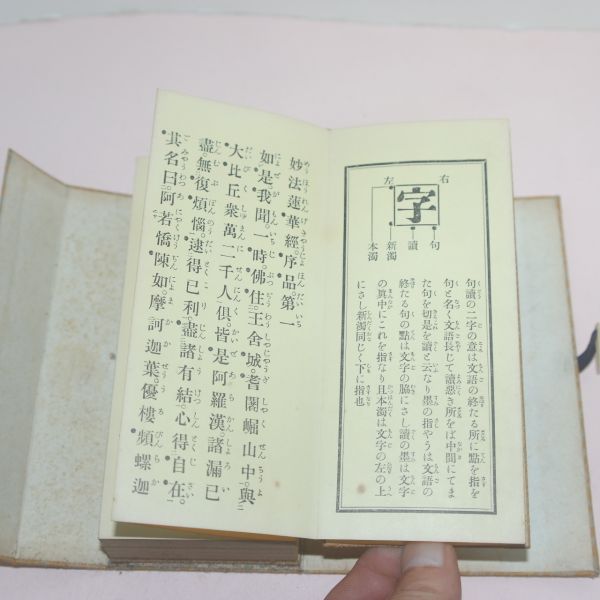 右
左
字
句
讀
新濁
本濁
句讀の二字の意は文語の終たる所に點を指を
句と名く文語長じて讀惑き所をば中間にてま
た句を切是を讀と云なり墨の指やうは文語の
終たる句の點は文字の脇にさし讀の墨は文字
の眞中にこれを指なり且本濁は文字の左の上
にさし新濁同じく下に指也
妙法蓮華經。序品第一
如是我聞。一時佛住。王舍城。耆闍崛山中。與
大比丘衆萬二千人俱。皆是阿羅漢諸漏已
盡無復煩惱。逮得已利。盡諸有結。心得自在。
其名曰。阿若憍陳如。摩訶迦葉。優樓頻螺迦